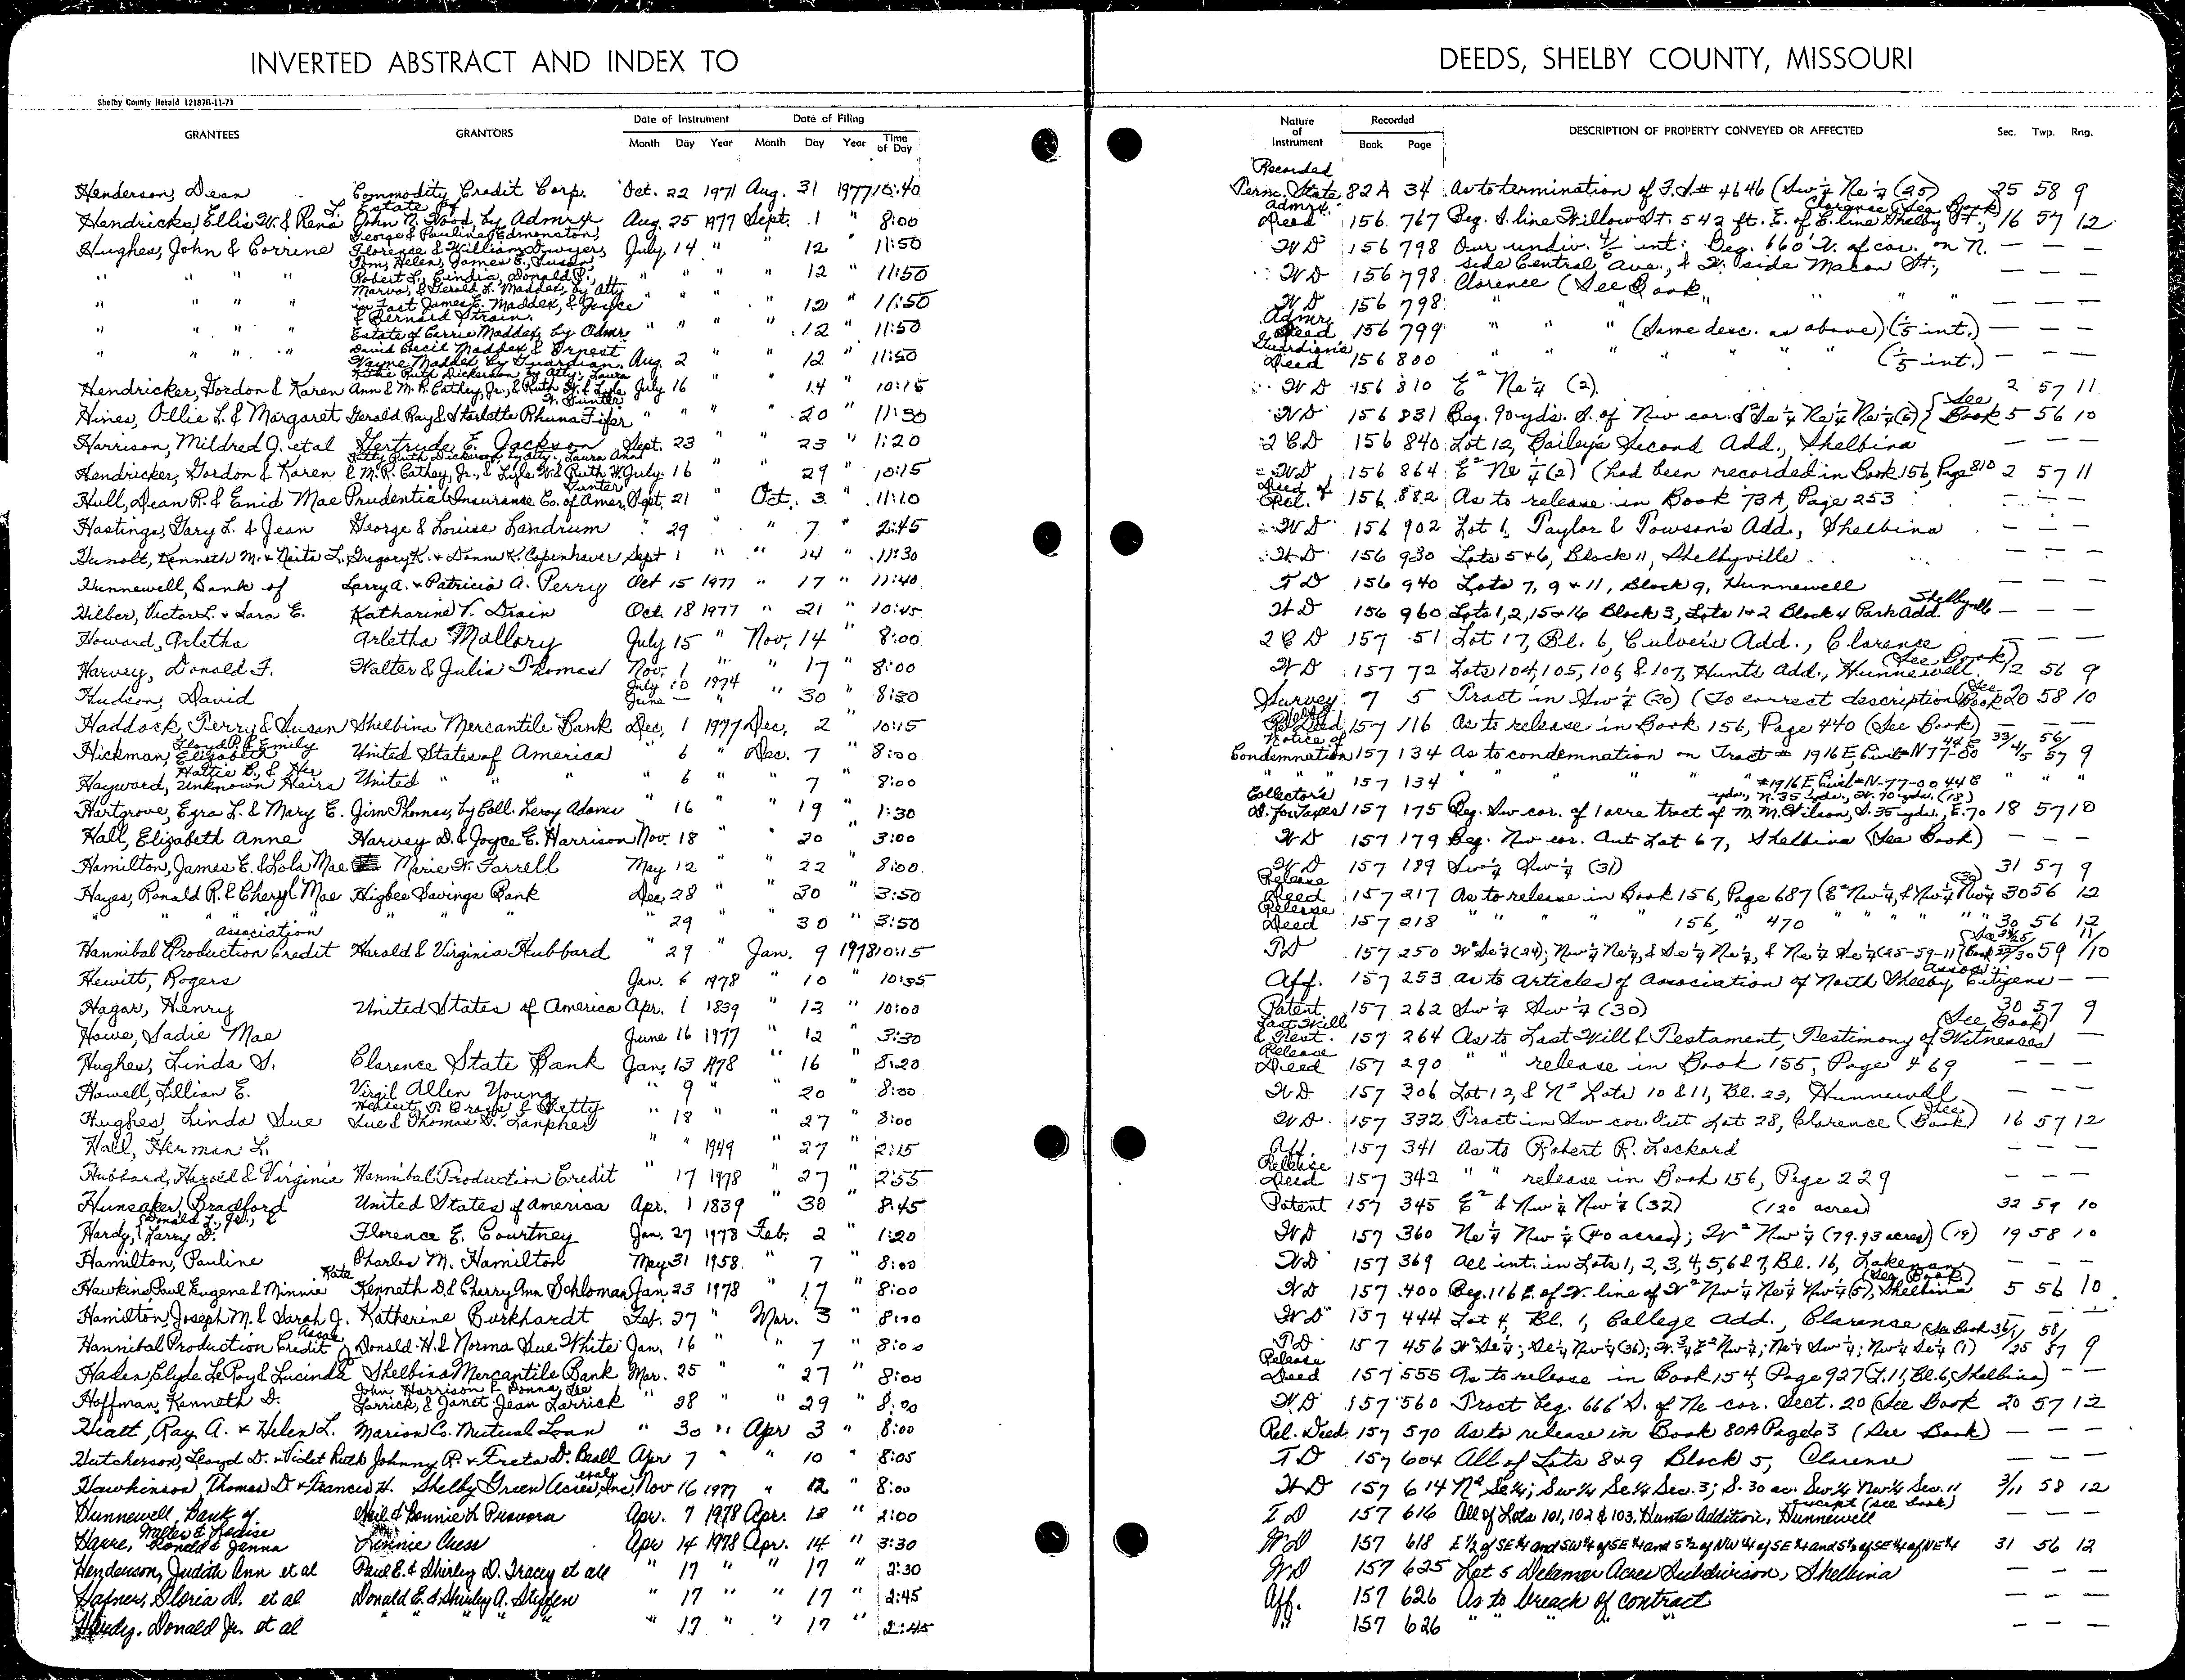 INVERTED ABSTRACT AND INDEX TO
DEEDS, SHELBY COUNTY, MISSOURI
Shelby County Herald 121876-11-71
GRANTEES GRANTORS Date of Instrument Month Day Year Date of Filing Month Day Year Time of Day Nature of Instrument Recorded Book Page DESCRIPTION OF PROPERTY CONVEYED OR AFFECTED Sec. Twp. Rng.
Henderson, Dean Commodity Credit Corp. Oct. 22 1971 Aug. 31 1977 10:40 Recorded Term. State 82A 34 As to termination of F.S.# 4646 (Sw ¼ Ne ¼ (25) 25 58 9
Hendricks, Ellis W. & Rena L. Estate of John N. Wood, by Admrx Aug. 25 1977 Sept. 1 " 8:00 Admrx. Deed 156 767 Beg. S. line Willow St. 542 ft. E. of E. line Shelby St., Clarence (See Book) 16 57 12
Hughes, John & Corrine George & Pauline Edmonston, Florence & William Dwyer, July 14 " " 12 " 11:50 WD 156 798 Our undiv. ⅕ int: Beg. 660' W. of cor. on N. — — —
" " " Tom, Helen, James E., Susan, Robert L., Cindia, Donald P., " " " " 12 " 11:50 WD 156 798 side Central Ave., & W. side Macon St., — — —
" " " Marvos, & Gerald L. Maddex, by Atty in Fact James E. Maddex, & Joyce & Bernard Strain. " " " " 12 " 11:50 WD 156 798 Clarence (See Book) " " " — — —
" " " Estate of Carrie Maddex, by Admr. " " " " 12 " 11:50 Admr. Deed 156 799 " " " (Same desc. as above) (⅕ int.) — — —
" " " David Cecil Maddex & Ernest Wayne Maddex by Guardian. Aug. 2 " " 12 " 11:50 Guardian's Deed 156 800 " " " " " (⅕ int.) — — —
Hendricker, Gordon & Karen Ruth Dickerson by Atty; Laura Ann & M. R. Cathey, Jr., & Ruth W. & Lyle W. Gunter July 16 " " 14 " 10:15 WD 156 810 E² Ne ¼ (2) 2 57 11
Hines, Ollie L. & Margaret Gerald Ray & Starletta Rhuna Fifer " " " 20 " 11:30 WD 156 831 Beg. 90 yds. S. of Nw cor. S² Se ¼ Ne ¼ Ne ¼ (5) (See Book 5 56 10
Harrison, Mildred J. et al Gertrude E. Jackson Sept. 23 " " 23 " 1:20 2 CD 156 840 Lot 12, Bailey's Second Add., Shelbina — — —
Hendricker, Gordon & Karen Ruth Dickerson, by Atty., Laura Ann & M. R. Cathey, Jr., & Lyle W. & Ruth W. Gunter July 16 " " 29 " 10:15 WD 156 864 E² Ne ¼ (2) (had been recorded in Book 156, Page 810 2 57 11
Hull, Dean R. & Enid Mae Prudential Insurance Co. of Amer. Sept. 21 " Oct. 3 " 11:10 Deed of Rel. 156 882 As to release in Book 73A, Page 253 — — —
Hastings, Gary L. & Jean George & Louise Landrum " 29 " 7 " 2:45 WD 156 902 Lot 1, Taylor & Towson's Add., Shelbina — — —
Kenneth M. & Neita L. Gregory K. & Donna K. Copenhaver Sept 1 " " 14 " 11:30 W.D 156 930 Lots 5+6, Block 11, Shelbyville — — —
Hunnewell, Bank of Larry A. & Patricia A. Perry Oct 15 1977 " 17 " 11:40 TD 156 940 Lots 7, 9 + 11, Block 9, Hunnewell — — —
Hilber, Victor L. & Sara E. Katharine V. Drain Oct. 18 1977 " 21 " 10:45 WD 156 960 Lots 1, 2, 15+16 Block 3, Lots 1+2 Block 4 Park Add. Shelbyville — — —
Howard, Arletha Arletha Mallory July 15 " Nov. 14 " 8:00 2 C D 157 51 Lot 17, Bl. 6, Culver's Add., Clarence — — —
Harvey, Donald F. Walter & Julia Thomas Nov. 1 " " 17 " 8:00 WD 157 72 Lots 104, 105, 106, & 107, Hunts Add., Hunnewell (See Book) 12 56 9
Hudson, David July 10 1974 June — " " 30 " 8:30 Survey 7 5 Tract in Sw ¼ (20) (To correct description (See Book 20 58 10
Haddock, Terry & Susan Shelbina Mercantile Bank Dec. 1 1977 Dec. 2 " 10:15 Deed 157 116 As to release in Book 156, Page 440 (See Book) — — —
Hickman, Lloyd P. & Emily Elizabeth United States of America " 6 " Dec. 7 " 8:00 Notice of Condemnation 157 134 As to condemnation on Tract # 1916E, Civil #N 77-00 44C 33/4/5 56/57 9
Hayward, Hattie B., & Her Unknown Heirs United " " " " 6 " " 7 " 8:00 " " 157 134 " " " " " #1916E Civil #N-77-00 44C " " "
Hartgrove, Ezra L. & Mary E. Jim Thomas, by Coll. Leroy Adams " 16 " " 19 " 1:30 Collector's D. for Taxes 157 175 Beg. Sw cor. of 1 acre tract of M. M. Wilson, S. 35 yds., E. 70 yds., N. 35 yds., W. 70 yds. (18) 18 57 10
Hall, Elizabeth Anne Harvey D. & Joyce E. Harrison Nov. 18 " " 20 " 3:00 WD 157 179 Beg. Nw cor. Out Lot 67, Shelbina (See Book) — — —
Hamilton, James E. & Lola Mae Marie W. Farrell May 12 " " 22 " 8:00 WD 157 189 Sw ¼ Sw ¼ (31) 31 57 9
Hayes, Ronald R. & Cheryl Mae Higbee Savings Bank Dec. 28 " " 30 " 3:50 Release Deed 157 217 As to release in Book 156, Page 687 (E² Nw ¼, & Nw ¼ Nw ¼ (30) 30 56 12
" " " " " " " 29 " 30 " 3:50 Release Deed 157 218 " " " " 156, " 470 " " " " " 30 56 12
Hannibal Production Credit Association Harold & Virginia Hubbard " 29 " Jan. 9 1978 10:15 TD 157 250 W² Se ¼ (24); Nw ¼ Ne ¼, & Se ¼ Ne ¼, & Ne ¼ Se ¼ (25-59-11) (See Book 59 11/10
Hewitt, Rogers Jan. 6 1978 " 10 " 10:35 Aff. 157 253 As to Articles of Association of North Shelby Citizens Assoc. — —
Hagar, Henry United States of America Apr. 1 1839 " 12 " 10:00 Patent 157 262 Sw ¼ Sw ¼ (30) 30 57 9
Howe, Sadie Mae June 16 1977 " 12 " 3:30 Last Will & Test. 157 264 As to Last Will & Testament, Testimony of Witnesses (See Book) — — —
Hughes, Linda S. Clarence State Bank Jan. 13 1978 " 16 " 8:20 Release Deed 157 290 " " release in Book 155, Page 469 — — —
Howell, Lillian E. Virgil Allen Young " 9 " " 20 " 8:00 WD 157 306 Lot 12, & N² Lots 10 & 11, Bl. 23, Hunnewell — — —
Hughes, Linda Sue Herbert T. Cragg, & Betty Sue & Thomas D. Lanpher " 18 " " 27 " 8:00 WD 157 332 Tract in Sw cor. Out Lot 28, Clarence (See Book) 16 57 12
Hall, Herman L. " " 1949 " 27 " 2:15 Aff. 157 341 As to Robert R. Lockard — — —
Hubbard, Harold & Virginia Hannibal Production Credit " 17 1978 " 27 " 2:55 Release Deed 157 342 " " release in Book 156, Page 229 — — —
Hunsaker, Bradford United States of America Apr. 1 1839 " 30 " 8:45 Patent 157 345 E² & Nw ¼ Nw ¼ (32) (120 acres) 32 59 10
Hardy, (Donald L., Jr., & Larry D. Florence E. Courtney Jan. 27 1978 Feb. 2 " 1:20 WD 157 360 Ne ¼ Nw ¼ (40 acres); W² Nw ¼ (79.93 acres) (19) 19 58 10
Hamilton, Pauline Charles M. Hamilton May 31 1958 " 7 " 8:00 WD 157 369 All int. in Lots 1, 2, 3, 4, 5, 6 & 7, Bl. 16, Lakenan — — —
Hawkins, Paul Eugene & Minnie Kate Kenneth D. & Cherry Ann Schloman Jan. 23 1978 " 17 " 8:00 WD 157 400 Beg. 116 E. of W. line of W² Nw ¼ Ne ¼ Nw ¼ (5), Shelbina (See Book) 5 56 10
Hamilton, Joseph M. & Sarah J. Katherine Burkhardt Feb. 27 " Mar. 3 " 8:10 WD 157 444 Lot 4, Bl. 1, College Add., Clarence — — —
Hannibal Production Credit Assoc. Donald H. & Norma Sue White Jan. 16 " " 7 " 8:00 TD 157 456 W² Se ¼; Se ¼ Nw ¼ (36); W. ¾ E² Nw ¼; Ne ¼ Sw ¼; Nw ¼ Se ¼ (1) (See Book 36/1/25 58/57 9
Haden, Clyde LeRoy & Lucinda Shelbina Mercantile Bank Mar. 25 " 27 " 8:00 Release Deed 157 555 As to release in Book 154, Page 927 (L. 11, Bl. 6, Shelbina) — —
Hoffman, Kenneth D. John Harrison & Donna Lee Larrick, & Janet Jean Larrick " 28 " 29 " 8:00 WD 157 560 Tract beg. 666' S. of Ne cor. Sect. 20 (See Book 20 57 12
Hiatt, Ray A. & Helen L. Marion Co. Mutual Loan " 30 " Apr 3 " 8:00 Rel. Deed 157 570 As to release in Book 80A Page 63 (See Book) — — —
Hutcherson, Lloyd D. & Violet Ruth Johnny R. & Freta D. Beall Apr 7 " " 10 " 8:05 TD 157 604 All of Lots 8+9 Block 5, Clarence — — —
Hawkinson, Thomas D. & Frances H. Shelby Green Acres, Inc., et al Nov 16 1977 " 12 " 8:00 WD 157 614 N² Se¼; Sw¼ Se¼ Sec. 3; S. 30 ac. Sw¼ Nw¼ Sec. 11 3/11 58 12
Hunnewell, Bank of Neil & Bonnie L. Provora Apr. 7 1978 Apr. 13 " 2:00 TD 157 616 All of Lots 101, 102 & 103, Hunts Addition, Hunnewell except (see book)
Ronald & Janna Linnie Cress Apr 14 1978 Apr. 14 " 3:30 WD 157 618 E ½ of SE ¼ and SW ¼ of SE ¼ and S ½ of NW ¼ of SE ¼ and S ½ of SE ¼ of NE ¼ 31 56 12
Henderson, Judith Ann et al Paul E. & Shirley D. Tracey et al " 17 " " 17 " 2:30 WD 157 625 Lot 5 Delamar Acres Subdivision, Shelbina — — —
Hafner, Gloria D. et al Donald E. & Shirley A. Steffen " 17 " " 17 " 2:45 Aff. 157 626 As to breach of contract — — —
Hardy, Donald Jr. et al " " " " 17 " " 17 " 2:45 " 157 626 " " " " — — —